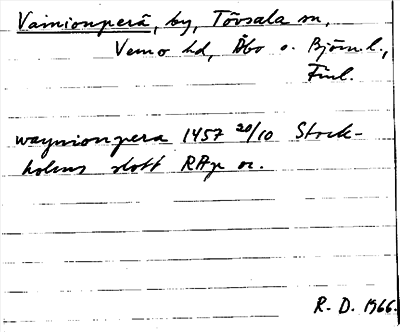 Vainionperä, by, Tövsala sn,
Vemo hd, Åbo o. Björn.l.,
Finl.
waynionpera 1457 20/10 Stock-
holms slott RAp or.
R. D. 1966.